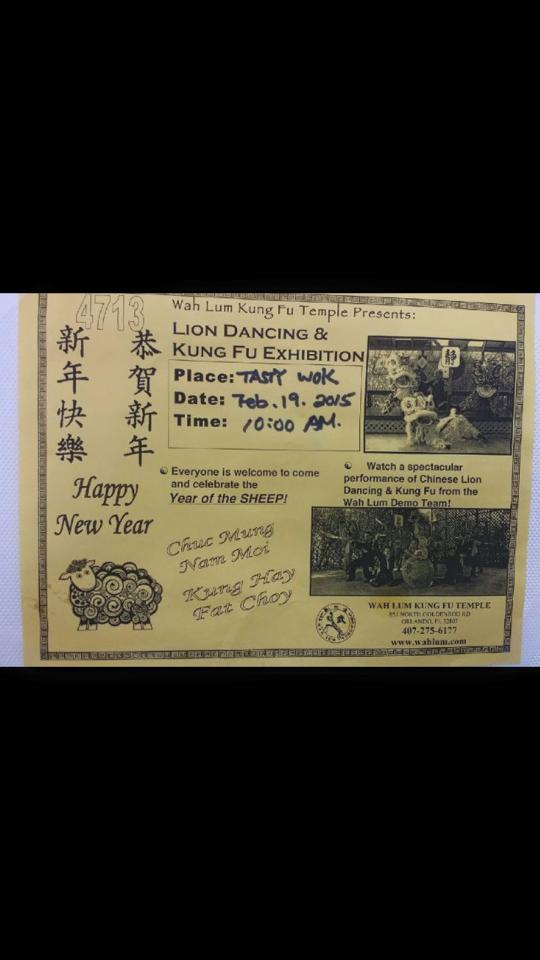 4713
新年快樂
恭賀新年
Happy
New Year
Wah Lum Kung Fu Temple Presents:
LION DANCING &
KUNG FU EXHIBITION
Place: TASTY WOK
Date: Feb. 19. 2015
Time: 10:00 AM.
Everyone is welcome to come
and celebrate the
Year of the SHEEP!
Watch a spectacular
performance of Chinese Lion
Dancing & Kung Fu from the
Wah Lum Demo Team!
静
Chuc Mung
Nam Moi
Kung Hay
Fat Choy
WAH LUM KUNG FU TEMPLE
851 NORTH GOLDENROD RD
ORLANDO, FL 32807
407-275-6177
www.wahlum.com